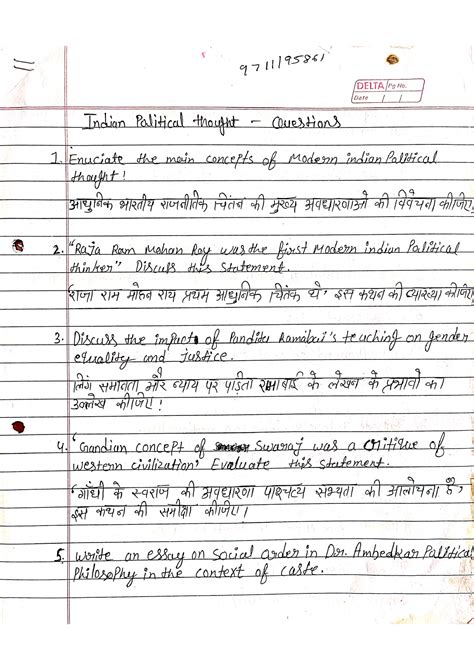 9711195861
DELTA Pg No.
Date / /
Indian Political thought - Questions
1. Enuciate the main concepts of Modern indian Political
thought!
आधुनिक भारतीय राजनीतिक चिंतन की मुख्य अवधारणाओं की विवेचना कीजिए।
2. "Raja Ram Mohan Roy was the first Modern indian Political
thinker" Discuss this statement.
'राजा राम मोहन राय प्रथम आधुनिक चिंतक थे' इस कथन की व्याख्या कीजिए
3. Discuss the impact of Pandita Ramabai's teaching on gender
equality and justice.
लिंग समानता और न्याय पर पंडिता रमाबाई के लेखन के प्रभावों का
उल्लेख कीजिए!
4. 'Gandian concept of Swaraj was a critique of
western civilization' Evaluate this statement.
'गाँधी के स्वराज की अवधारणा पाश्चत्य सभ्यता की आलोचना है',
इस कथन की समीक्षा कीजिए।
5. write an essay on social order in Dr. Ambedkar Political
Philosophy in the context of caste.